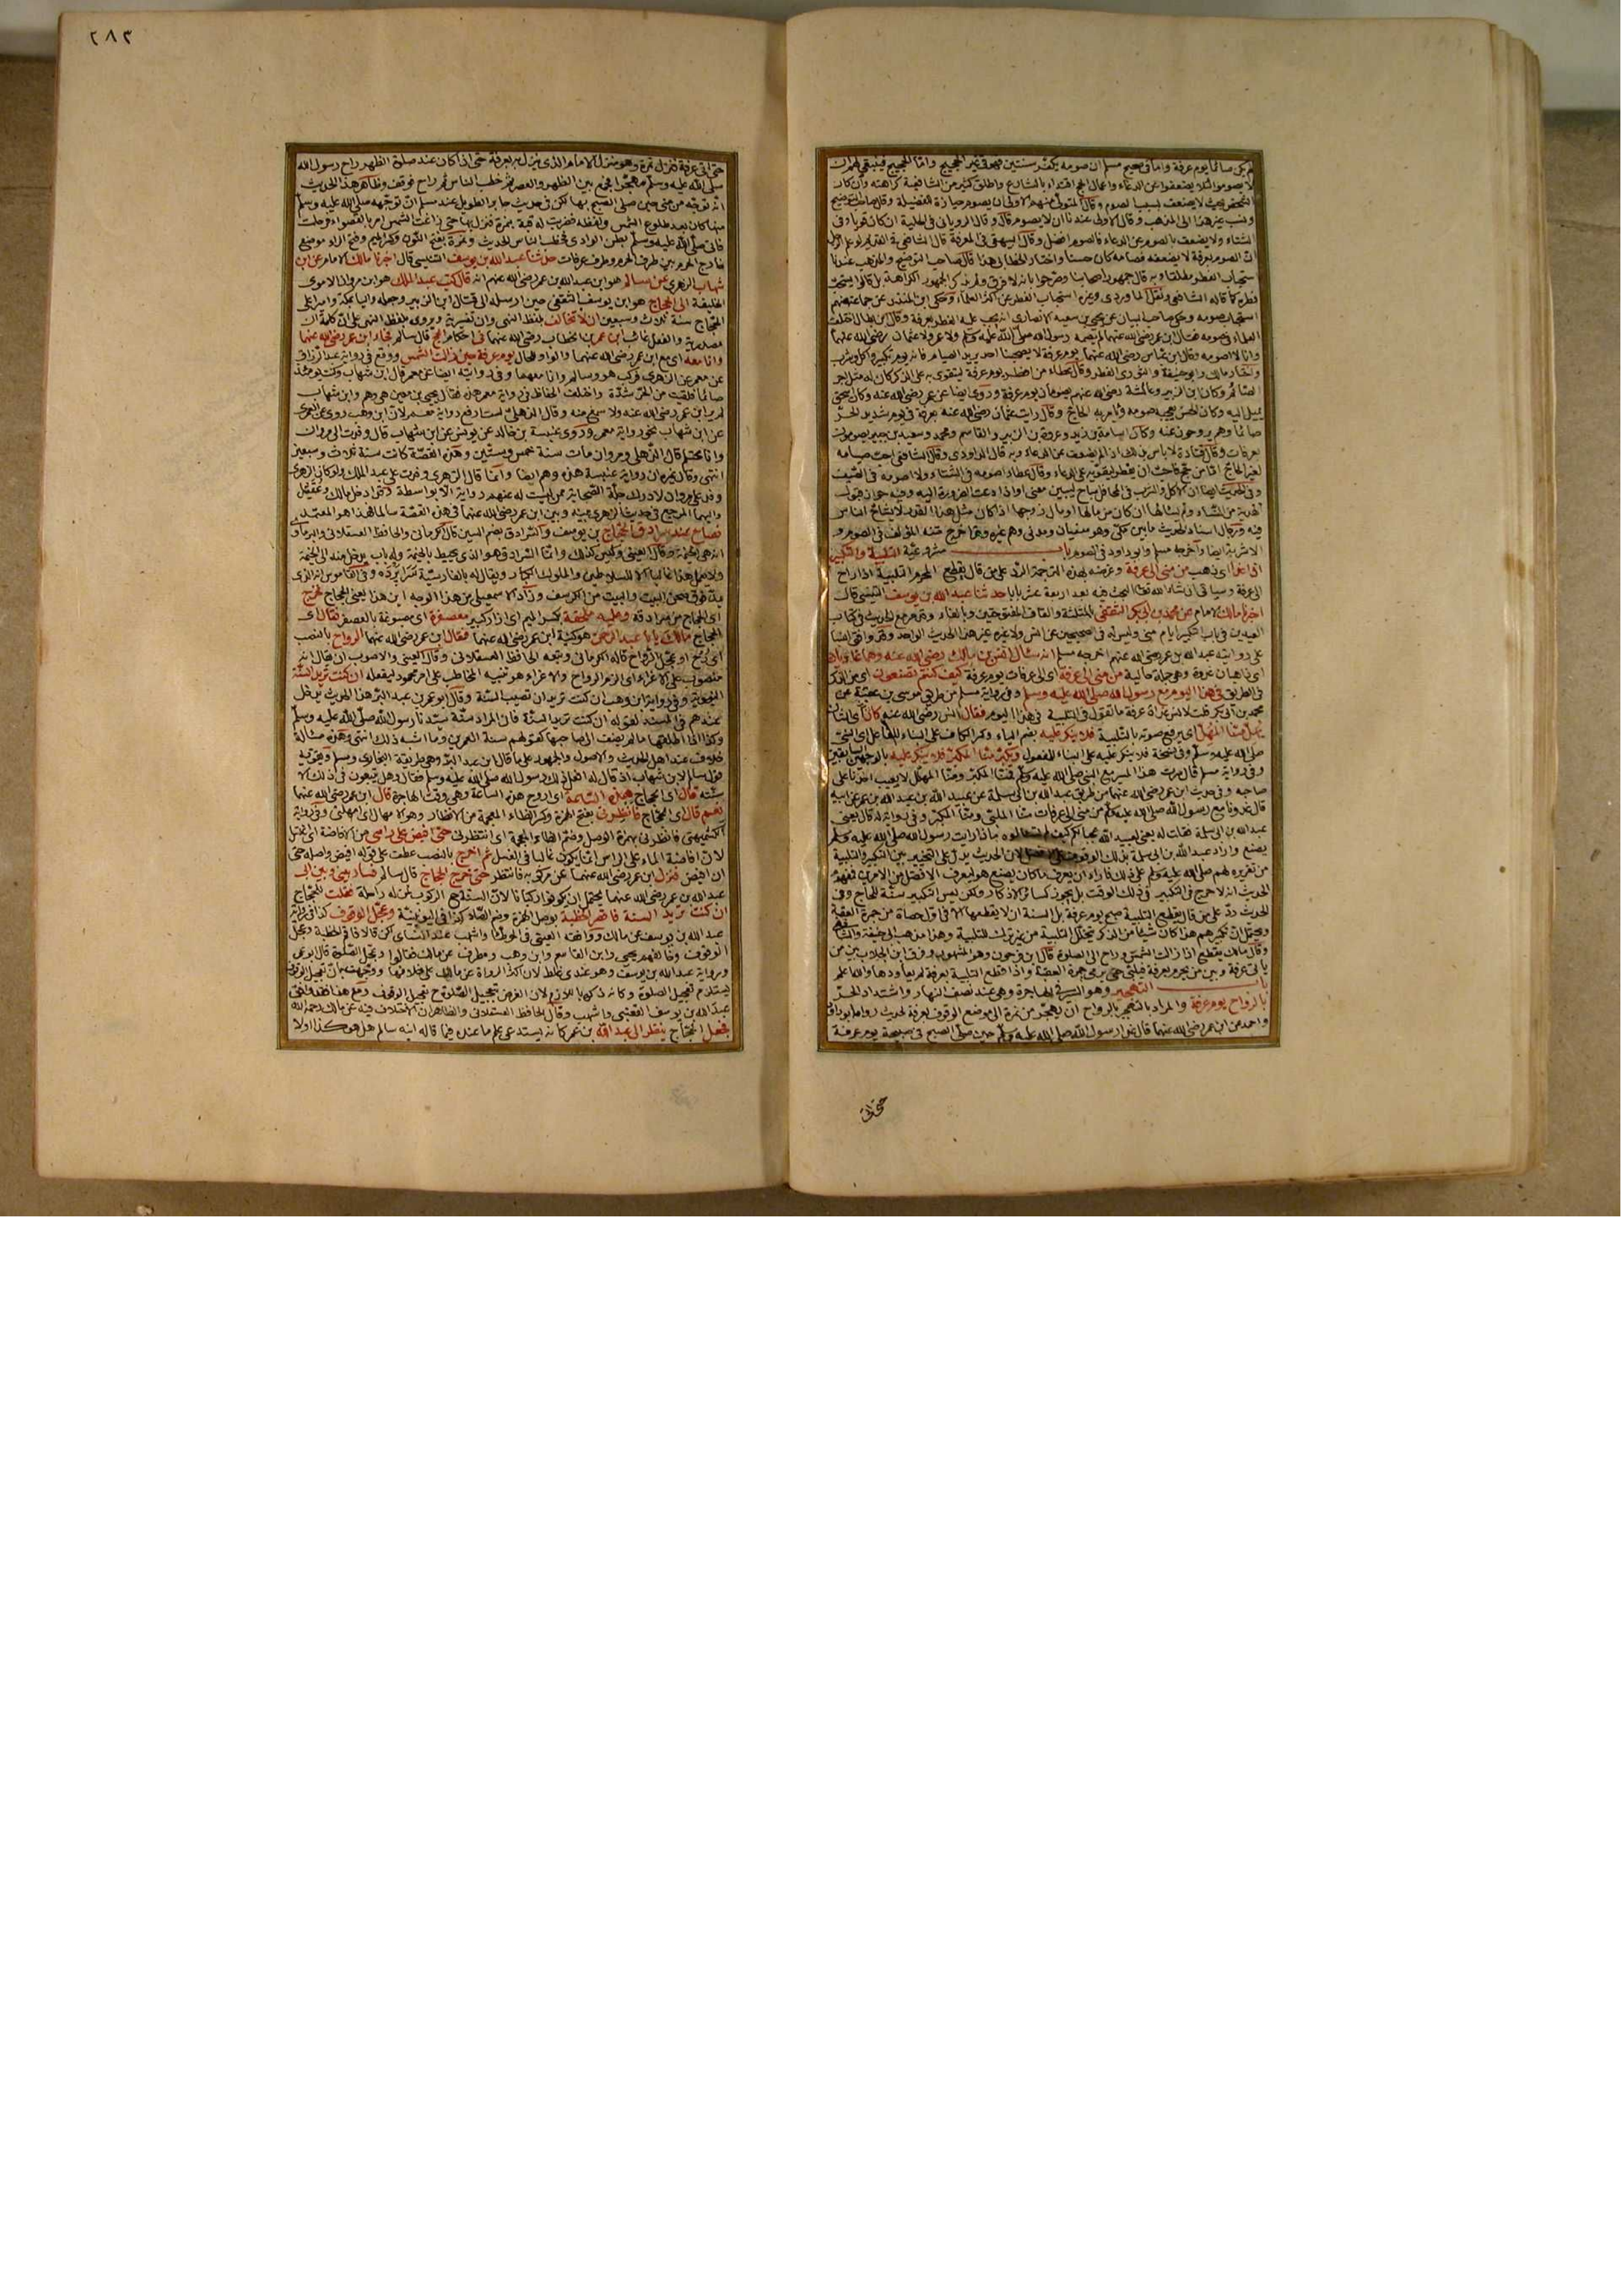 لم يكن صائما يوم عرفة واما في صحيح مسلم ان صومه يكفر سنتين فهو في غير الحجيج واما الحجيج فينبغي لهم ان
لا يصوموا لئلا يضعفوا عن الدعاء واعمال الحج اقتداء بالشارع واطلق كثير من الشافعية كراهته وان كان
الشخص بحيث لا يضعف بسبب الصوم وقال المتولي منهم الاولى ان يصوم حيازة الفضيلة
ونسب غيره هذا الى المذهب وقال الاولى عندنا ان لا يصوم قال وقال الروياني في الحلية ان كان قويا وفي
الشتاء ولا يضعف بالصوم عن الدعاء فالصوم افضل وقال البيهقي في المعرفة قال الشافعي في القديم لو علم الرجل
ان الصوم بعرفة لا يضعفه فصامه كان حسنا واختار الخطابي هذا قال صاحب التوضيح والمذهب عندنا
استحباب الفطر مطلقا وبه قال جمهور اصحابنا وصرحوا بانه لا فرق ولم يذكر الجمهور الكراهة بل قالوا يستحب
فطره كما قاله الشافعي ونقل الماوردي وغيره استحباب الفطر عن اكثر العلماء وحكى ابن المنذر عن جماعة منهم
استحباب صومه وحكى صاحب البيان عن يحيى بن سعيد الانصاري انه يجب عليه الفطر بعرفة وقال ابن بطال اختلف
العلماء في صومه فقال ابن عمر رضي الله عنهما لم يصمه رسول الله صلى الله عليه وسلم ولا عمر ولا عثمان رضي الله عنهما
وانا لا اصومه وقال ابن عباس رضي الله عنهما يوم عرفة لا يصحبنا احد يريد الصيام فانه يوم تكبير واكل وشرب
واختار مالك وابو حنيفة والثوري الفطر وقال عطاء من افطر يوم عرفة ليتقوى به على الذكر كان له مثل اجر
الصائم وكان ابن الزبير وعائشة رضي الله عنهم يصومان يوم عرفة وروى ايضا عن عمر رضي الله عنه وكان اسحق
يميل اليه وكان الحسن يعجبه صومه ويأمر به الحاج وقال رايت عثمان رضي الله عنه بعرفة في يوم شديد الحر
صائما وهم يروحون عنه وكان اسامة بن زيد وعروة بن الزبير والقاسم ومحمد وسعيد بن جبير يصومون
بعرفات وقال قتادة لا باس بذلك اذا لم يضعف عن الدعاء وبه قال الداودي وقال الشافعي احب صيامه
لغير الحاج اما من حج فاحب ان يفطر ليقويه على الدعاء وقال عطاء اصومه في الشتاء ولا اصومه في الصيف
وفي الحديث ايضا ان الاكل والشرب في المحافل مباح ليبين معنى او اذا دعت الضرورة اليه وفيه جواز قبول
الهدية من النساء ولم يسألها ان كان من مالها او مال زوجها اذا كان مثل هذا القدر لا يشاح الناس
فيه ورجال اسناد الحديث ما بين مكي وهو سفيان ومدني وهم غيره وقد اخرج متنه المؤلف في الصوم و
الاشربة ايضا واخرجه مسلم وابو داود في الصوم باب مشروعية التلبية والتكبير
اذا غدا اي ذهب من منى الى عرفة وغرضه بهذه الترجمة الرد على من قال يقطع المحرم التلبية اذا راح
الى عرفة وسيأتي ان شاء الله تعالى البحث فيه بعد اربعة عشر بابا حدثنا عبد الله بن يوسف التنيسي قال
اخبرنا مالك الامام عن محمد بن ابي بكر الثقفي بالمثلثة والقاف المفتوحتين وبالفاء وقد مر مع الحديث في كتاب
العيدين في باب التكبير ايام منى وليس له في الصحيحين عن انس ولا غيره غير هذا الحديث الواحد وقد وافق انسا
على روايته عبد الله بن عمر رضي الله عنهم اخرجه مسلم انه سأل انس بن مالك رضي الله عنه وهما غاديان
اي ذاهبان غدوة وهي جملة حالية من منى الى عرفة اي الى عرفات يوم عرفة كيف كنتم تصنعون اي من الذكر
في الطريق في هذا اليوم مع رسول الله صلى الله عليه وسلم وفي رواية مسلم من طريق موسى بن عقبة عن
محمد بن ابي بكر قلت لانس غداة عرفة ما تقول في التلبية في هذا اليوم فقال انس رضي الله عنه كان اي الشان
يهل منا المهل اي يرفع صوته بالتلبية فلا ينكر عليه بضم الياء وكسر الكاف على البناء للفاعل اي النبي
صلى الله عليه وسلم وفي نسخة فلا ينكر عليه على البناء للمفعول ويكبر منا المكبر فلا ينكر عليه بالوجهين السابقين
وفي رواية مسلم قال سرت هذا المسير مع النبي صلى الله عليه وسلم فمنا المكبر ومنا المهلل لا يعيب احدنا على
صاحبه وفي حديث ابن عمر رضي الله عنهما من طريق عبد الله بن ابي سلمة عن عبيد الله بن عبد الله بن عمر عن ابيه
قال غدونا مع رسول الله صلى الله عليه وسلم من منى الى عرفات منا الملبي ومنا المكبر وفي رواية له قال يعني
عبد الله بن ابي سلمة فقلت له يعني لعبيد الله عجبا لكم كيف لم تسألوه ماذا رايت رسول الله صلى الله عليه وسلم
يصنع واراد عبد الله بن ابي سلمة بذلك الوقوف على الافضل لان الحديث يدل على التخيير بين التكبير والتلبية
من تقريره لهم صلى الله عليه وسلم على ذلك فاراد ان يعرف ما كان يصنع هو ليعرف الافضل من الامرين
الحديث انه لا حرج في التكبير في ذلك الوقت بل يجوز كسائر الاذكار ولكن ليس التكبير سنة للحاج وفي
الحديث رد على من قال يقطع التلبية صبح يوم عرفة بل السنة ان لا يقطعها الا في اول حصاة من جمرة العقبة
ويحتمل ان تكبيرهم هذا كان شيئا من الذكر يتخلل التلبية من غير ترك للتلبية وهذا مذهب ابي حنيفة والشافعي
وقال مالك يقطع اذا زالت الشمس وراح الى الصلوة قال ابن فرحون وهو المشهور وفرق ابن الجلاب بين من
يأتي عرفة وبين من يحرم بعرفة فيلبي حتى يرمي جمرة العقبة واذا قطع التلبية بعرفة لم يعاودها والله اعلم
باب التهجير وهو السير في الهاجرة وهي عند نصف النهار واشتداد الحر
بالرواح يوم عرفة والمراد بالتهجير بالرواح ان يهجر من نمرة الى موضع الوقوف بعرفة لحديث رواه ابو داود
واحمد من ابن عمر رضي الله عنهما قال غدا رسول الله صلى الله عليه وسلم حين صلى الصبح في صبيحة يوم عرفة
حتى اتى
٢٨٣
حتى اتى عرفة فنزل نمرة وهو منزل الامام الذي ينزل به بعرفة حتى اذا كان عند صلوة الظهر راح رسول الله
صلى الله عليه وسلم مهجرا فجمع بين الظهر والعصر ثم خطب الناس ثم راح فوقف وظاهر هذا الحديث
انه توجه من منى حين صلى الصبح بها لكن في حديث جابر الطويل عند مسلم ان توجهه صلى الله عليه وسلم
منها كان بعد طلوع الشمس ولفظه فضربت له قبة بنمرة فنزل بها حتى زاغت الشمس امر بالقصواء فرحلت
فاتى صلى الله عليه وسلم بطن الوادي فخطب الناس الحديث ونمرة بفتح النون وكسر الميم وفتح الراء موضع
خارج الحرم بين طرف الحرم وطرف عرفات حدثنا عبد الله بن يوسف التنيسي قال اخبرنا مالك الامام عن ابن
شهاب الزهري عن سالم هو ابن عبد الله بن عمر رضي الله عنهم انه قال كتب عبد الملك هو ابن مروان الاموي
الخليفة الى الحجاج هو ابن يوسف الثقفي حين ارسله الى قتال ابن الزبير وجعله واليا بمكة واميرا على
الحجاج سنة ثلاث وسبعين ان لا تخالف بلفظ النهي وان تفسيرية ويروى بلفظ النفي على ان كلمة ان
مصدرية والفعل غائب ابن عمر بن الخطاب رضي الله عنهما في احكام الحج قال سالم فجاء ابن عمر رضي الله عنهما
وانا معه اي مع ابن عمر رضي الله عنهما والواو للحال يوم عرفة حين زالت الشمس ووقع في رواية عبد الرزاق
عن معمر عن الزهري فركب هو وسالم وانا معهما وفي روايته ايضا عن معمر قال ابن شهاب وكنت يومئذ
صائما فلقيت من الحر شدة واختلف الحفاظ في رواية معمر هذه فقال يحيى بن معين هي وهم وابن شهاب
لم ير ابن عمر رضي الله عنه ولا سمع منه وقال الذهلي لست ادفع رواية معمر لان ابن وهب روى عن العمري
عن ابن شهاب نحو رواية معمر وروى عنبسة بن خالد عن يونس عن ابن شهاب قال وفدت الى مروان
وانا محتلم قال الذهلي ومروان مات سنة خمس وستين وهذه القصة كانت سنة ثلاث وسبعين
انتهى وقال غيره ان رواية عنبسة هذه وهم ايضا وانما قال الزهري وفدت على عبد الملك ولو كان الزهري
وفد على مروان لادرك جلة الصحابة ممن ليست له عنهم رواية الا بواسطة وقد ادخل مالك وعقيل
واليهما المرجع في حديث الزهري بينه وبين ابن عمر رضي الله عنهما في هذه القصة سالما فهذا هو المعتمد
فصاح عند سرادق الحجاج بن يوسف والسرادق بضم السين قال الكرماني والحافظ العسقلاني والبرماوي
انه هي الخيمة وقال العيني وليس كذلك وانما السرادق هو الذي يحيط بالخيمة وله باب يدخل منه الى الخيمة
ولا يعمل هذا غالبا الا للسلاطين والملوك الكبار ويقال له بالفارسية سراپرده وفي القاموس انه الذي
يمد فوق صحن البيت والبيت من الكرسف وزاد الاسمعيلي من هذا الوجه اين هذا يعني الحجاج فخرج
اي الحجاج من سرادقه وعليه ملحفة بكسر الميم اي ازار كبير معصفرة اي مصبوغة بالعصفر فقال اي
الحجاج مالك يا ابا عبد الرحمن هو كنية ابن عمر رضي الله عنهما فقال ابن عمر رضي الله عنهما الرواح بالنصب
اي رح او عجل الرواح قاله الكرماني وتبعه الحافظ العسقلاني وقال العيني والاصوب ان يقال انه
منصوب على الاغراء اي الزم الرواح والاغراء هو تنبيه المخاطب على امر محمود ليفعله ان كنت تريد السنة
النبوية وفي رواية ابن وهب ان كنت تريد ان تصيب السنة وقال ابو عمر بن عبد البر هذا الحديث يدخل
عندهم في المسند لقوله ان كنت تريد السنة فان المراد سنة سيدنا رسول الله صلى الله عليه وسلم
وكذا اذا اطلقها ما لم يضف الى صاحبها كقولهم سنة العمرين وما اشبه ذلك انتهى وهذه مسألة
خلاف عند اهل الحديث والاصول والجمهور على ما قال ابن عبد البر وهي طريقة البخاري ومسلم ويقويه
قول سالم لابن شهاب اذ قال له افعل ذلك رسول الله صلى الله عليه وسلم فقال وهل يتبعون في ذلك الا
سنته قال اي الحجاج هذه الساعة اي اروح هذه الساعة وهي وقت الهاجرة قال ابن عمر رضي الله عنهما
نعم قال اي الحجاج فانظرني بفتح الهمزة وكسر الظاء المعجمة من الانظار وهو الامهال اي امهلني وفي رواية
الكشميهني فانظرني بهمزة الوصل وضم الظاء المعجمة اي انتظرني حتى افيض على رأسي من الافاضة اي اغتسل
لان افاضة الماء على الراس انما يكون غالبا في الغسل ثم اخرج بالنصب عطف على قوله افيض واصله حتى
ان افيض فنزل ابن عمر رضي الله عنهما عن مركوبه فانتظر حتى خرج الحجاج قال سالم فسار بيني وبين ابي
عبد الله بن عمر رضي الله عنهما يحتمل ان يكونوا ركبانا لان السنة الركوب لمن له راحلة فقلت للحجاج
ان كنت تريد السنة فاقصر الخطبة بوصل الهمزة وضم الصاد كذا في اليونينية وعجل الوقوف كذا في رواية
عبد الله بن يوسف عن مالك ووافقه القعنبي في الموطأ واشهب عند النسائي لكن قالا فاقصر الخطبة وعجل
الوقوف وخالفهم يحيى وابن القاسم وابن وهب ومطرف عن مالك فقالوا وعجل الصلوة قال ابو عمر
ورواية عبد الله بن يوسف وهو عندي غلط لان اكثر الرواة عن مالك على خلافها ووجهت بان تعجيل الوقوف
يستلزم تعجيل الصلوة وكانه ذكره باللازم لان الغرض بتعجيل الصلوة ح تعجيل الوقوف ومع هذا فقد وافق
عبد الله بن يوسف القعنبي واشهب وقال الحافظ العسقلاني والظاهر ان الاختلاف فيه عن مالك رحمه الله
فجعل الحجاج ينظر الى عبد الله بن عمر كانه يستدعي علم ما عنده فيما قاله ابنه سالم هل هو كذا او لا